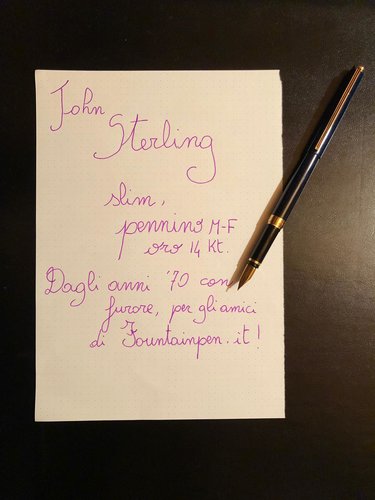 John
Sterling
slim,
pennino M-F
oro 14 Kt.
Dagli anni '70 con
furore, per gli amici
di Fountainpen.it!